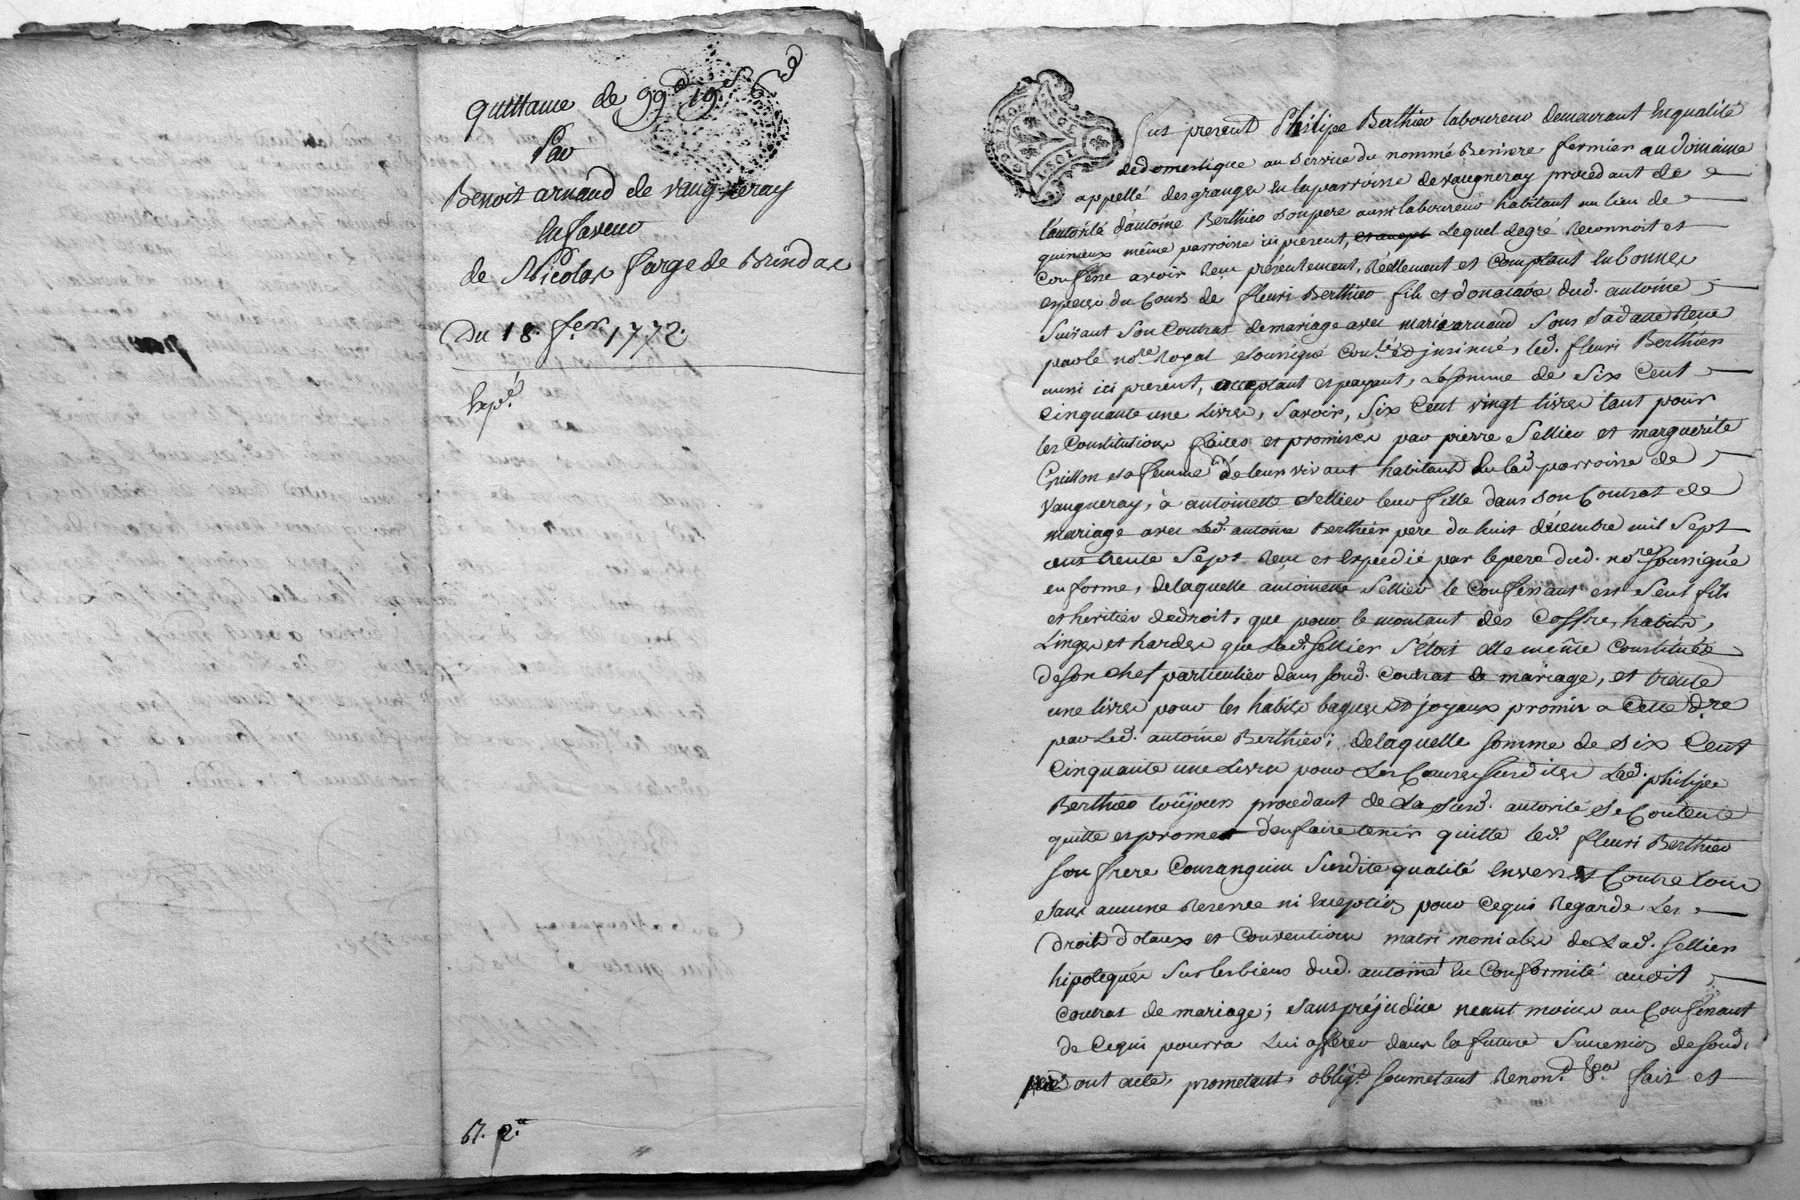 quittance de 99# 19s 6d
Par
Benoit arnaud de vaugneray
en faveur
de Nicolas farge de Brindas
Du 18. fer. 1772.
Exp.é
67. 2.e
fut present Philipe Berthier laboureur demeurant en qualité
de domestique au service du nommé Beniere fermier au domaine
appellé des granges en la parroisse de vaugneray procedant de
l'autorité d'antoine Berthier son pere aussi laboureur habitant au lieu de
quinieux même parroisse ici present, Lequel de gré Reconnoit et
Confesse avoir Reçu présentement, Réellement et Comptant En bonnes
especes du Cours de fleuri Berthier fils et donataire dud. antoine
Suivant Son Contrat de mariage avec marie arnaud Sous Sa datte Reçu
par le nore Royal soussigné Conlé et jnsinué, led. fleuri Berthier
aussi ici present, acceptant et payant, La Somme de Six Cent
Cinquante une Livres, Savoir, Six Cent vingt livres tant pour
les Constitutions faites et promises par pierre Sellier et marguerite
Guillon sa femme de leur vivant habitants En lad parroisse de
Vaugneray, à antoinette Sellier leur fille dans son Contrat de
mariage avec Led. antoine Berthier pere du huit décembre mil Sept
cent trente Sept Reçu et Expedié par le pere dud. nore soussigné
en forme, de laquelle antoinette Sellier le Confessant est Seul fils
et heritier de droit, que pour le montant des Coffre, habits,
Linges et hardes que Lad. Sellier S'étoit elle même Constituée
de son chef particulier dans soud. Contrat de mariage, et trente
une livres pour les habits bagues et joyaux promis a Cette dre
par Led. antoine Berthier; de laquelle Somme de Six Cent
Cinquante une Livres pour Les Causes Susdites Led. philipe
Berthier toûjours procedant de La Susd. autorité Se Contente
quitte et promet d'en faire tenir quitte led. fleuri Berthier
Son frere Consanguin Susdite qualité Envers et Contre tous
sans aucune Reserve ni Exception pour Ce qui Regarde Les
droits dotaux et Conventions matrimoniales de Lad. Sellier
hipotequés Sur les biens dud. antoine En Conformité audit
Contrat de mariage; sans préjudice neantmoins au Confessant
de Ce qui pourra Lui afferer dans la future Succession de Soud.
pere dont acte, prometant, oblig.t Soumetant Renon.t &a. fait et